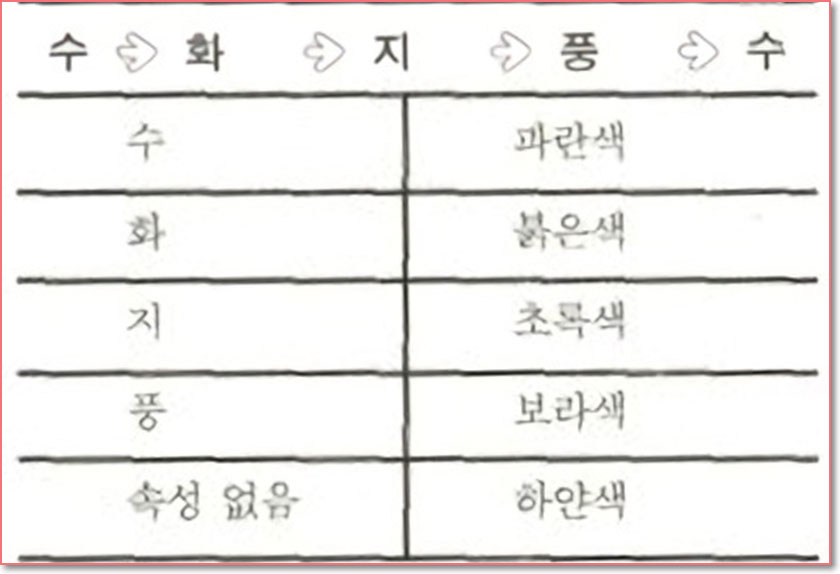 수 ➪ 화 ➪ 지 ➪ 풍 ➪ 수
수 파란색
화 붉은색
지 초록색
풍 보라색
속성 없음 하얀색